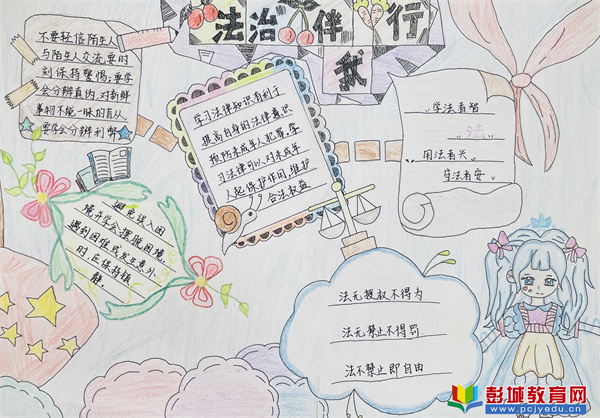 法治伴我行
不要轻信陌生人
与陌生人交流,要时
刻保持警惕,要学
会分辨真伪,对新鲜
事物不能一味的盲从
要学会分辨利弊
学习法律知识有利于
提高自身的法律意识
预防未成年人犯罪,学
习法律可以对未成年
人起保护作用,维护
合法权益
学法有智
法
用法有兴
守法有安
避免误入困
境并学会摆脱困境,
遇到困难或发生意外
时,应保持镇
静.
法无授权不得为
法无禁止不得罚
法不禁止即自由
彭城教育网
www.pcjyedu.cn